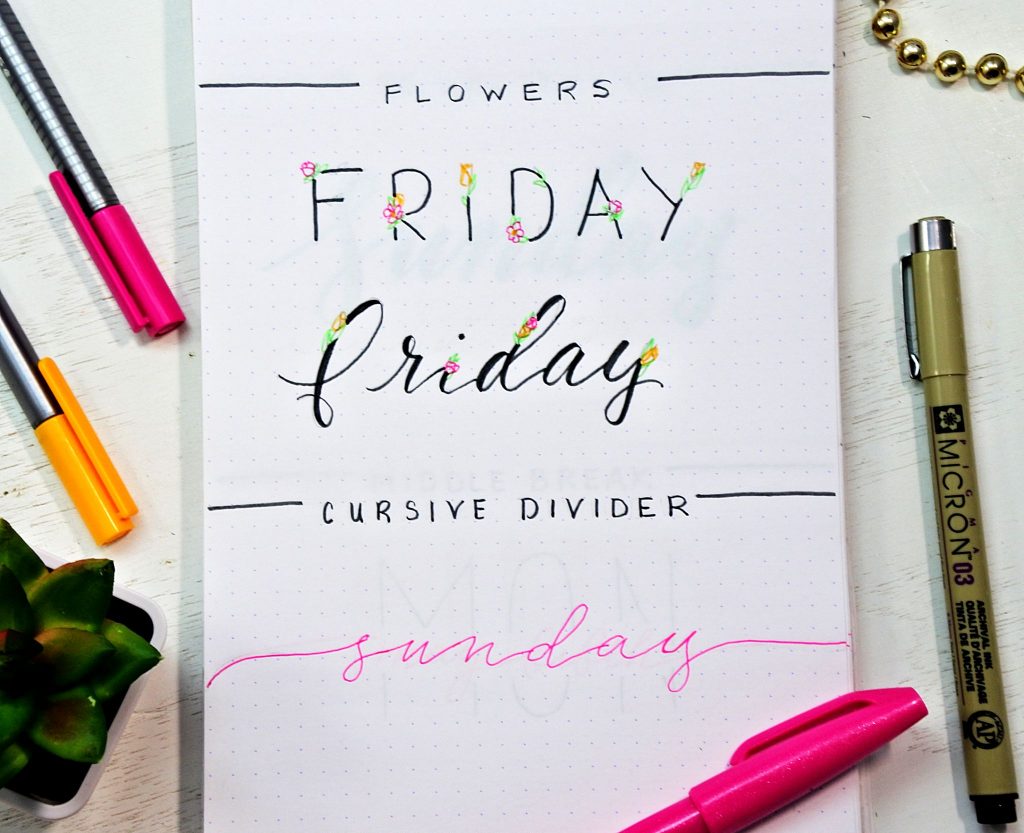 FLOWERS
FRIDAY
friday
MIDDLE BREAK
CURSIVE DIVIDER
MON
sunday
PIGMA
MICRON™ 03
ARCHIVAL INK
QUALITÉ D'ARCHIVAGE
TINTA DE ARCHIVE
AP